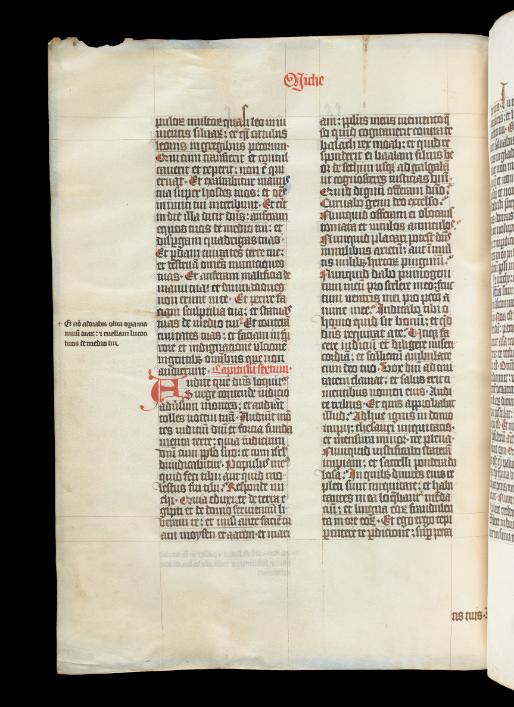 Miche
pulos multos quasi leo in iu
mentis siluaꝝ: et q̃si catulus
leonis in gregibus pecorum
Qui cum transierit et concul
cauerit et ceperit: non ē qui
eruat. Et exaltabitur manus
tua super hostes tuos: et om̄s
inimici tui interibunt. Et erit
in die illa dicit dn̄s: auferam
equos tuos de medio tui: et
disp̱dam quadrigas tuas.
Et p̱dam ciuitates terre tue:
et destruā omēs munitiones
tuas. Et auferam maleficia de
manu tua: et diuinationes
non erunt in te. Et perire fa
ciam sculptilia tua: et statuas
tuas de medio tui. Et conterā
ciuitates tuas: et faciam in fu
rore et indignatione ultionē
in gentibus omnibus que non
audierunt. Capitulū sextum.
Audite que dn̄s loquitᷣ.
Surge contende iudicio
aduersum montes: et audiāt
colles uocem tuā. Audiāt mō
tes iudiciū dn̄i: et fortia funda
menta terre: quia iudicium
dn̄i cum pplo suo: et cum isrł
diiudicabitur. Popule meᷣ
quid feci tibi: aut quid mo
lestus fui tibi? Responde mi
chi. Quia eduxi te de terra e
gipti: et de domo seruientiū li
beraui te: et misi ante faciē tu
am moysen et aaron: et mari
am: popule meus memento q̄
so quid cogitauerit contra te
balach rex moab: et quid re
sponderit ei balaam filius be
or de sethim usq̃ ad galgala
ut cognosceres iusticias dn̄i.
Quid dignū offeram dn̄o:
Curuabo genu deo excelso:
Nunquid offeram ei olocaus
tomata et uitulos anniculos:
Nunquid placari potest dn̄s
in milibus arietū: aut in mul
tis milibᷣ hircoꝝ pinguiū:
Nunquid dabo primogeni
tum meū pro scelere meo: fruc
tum uentris mei pro pecca
to anime mee? Indicabo tibi o
homo quid sit bonū: et qͥd
dn̄s requirat a te. Vtiq̃ fa
cere iudiciū et diligere miseri
cordiā: et sollicitū ambulare
cum deo tuo. Vox dn̄i ad ciui
tatem clamat: et salus erit ti
mentibus nomen eius. Audi
te tribus. Et quis approbabit
illud: Adhuc ignis in domo
impii: thesauri iniquitatis
et mensura minor ire plena.
Nunquid iustificabo staterā
impiam: et saccelli pondera do
losa: In quibus diuites eius re
pleti sunt iniquitate: et habi
tantes in ea loquebantᷣ menda
ciū: et lingua eoꝝ fraudulen
ta in ore eoꝝ. Et ego ergo cepi
percutere te p̱ditione: sup pecca
tis tuis.